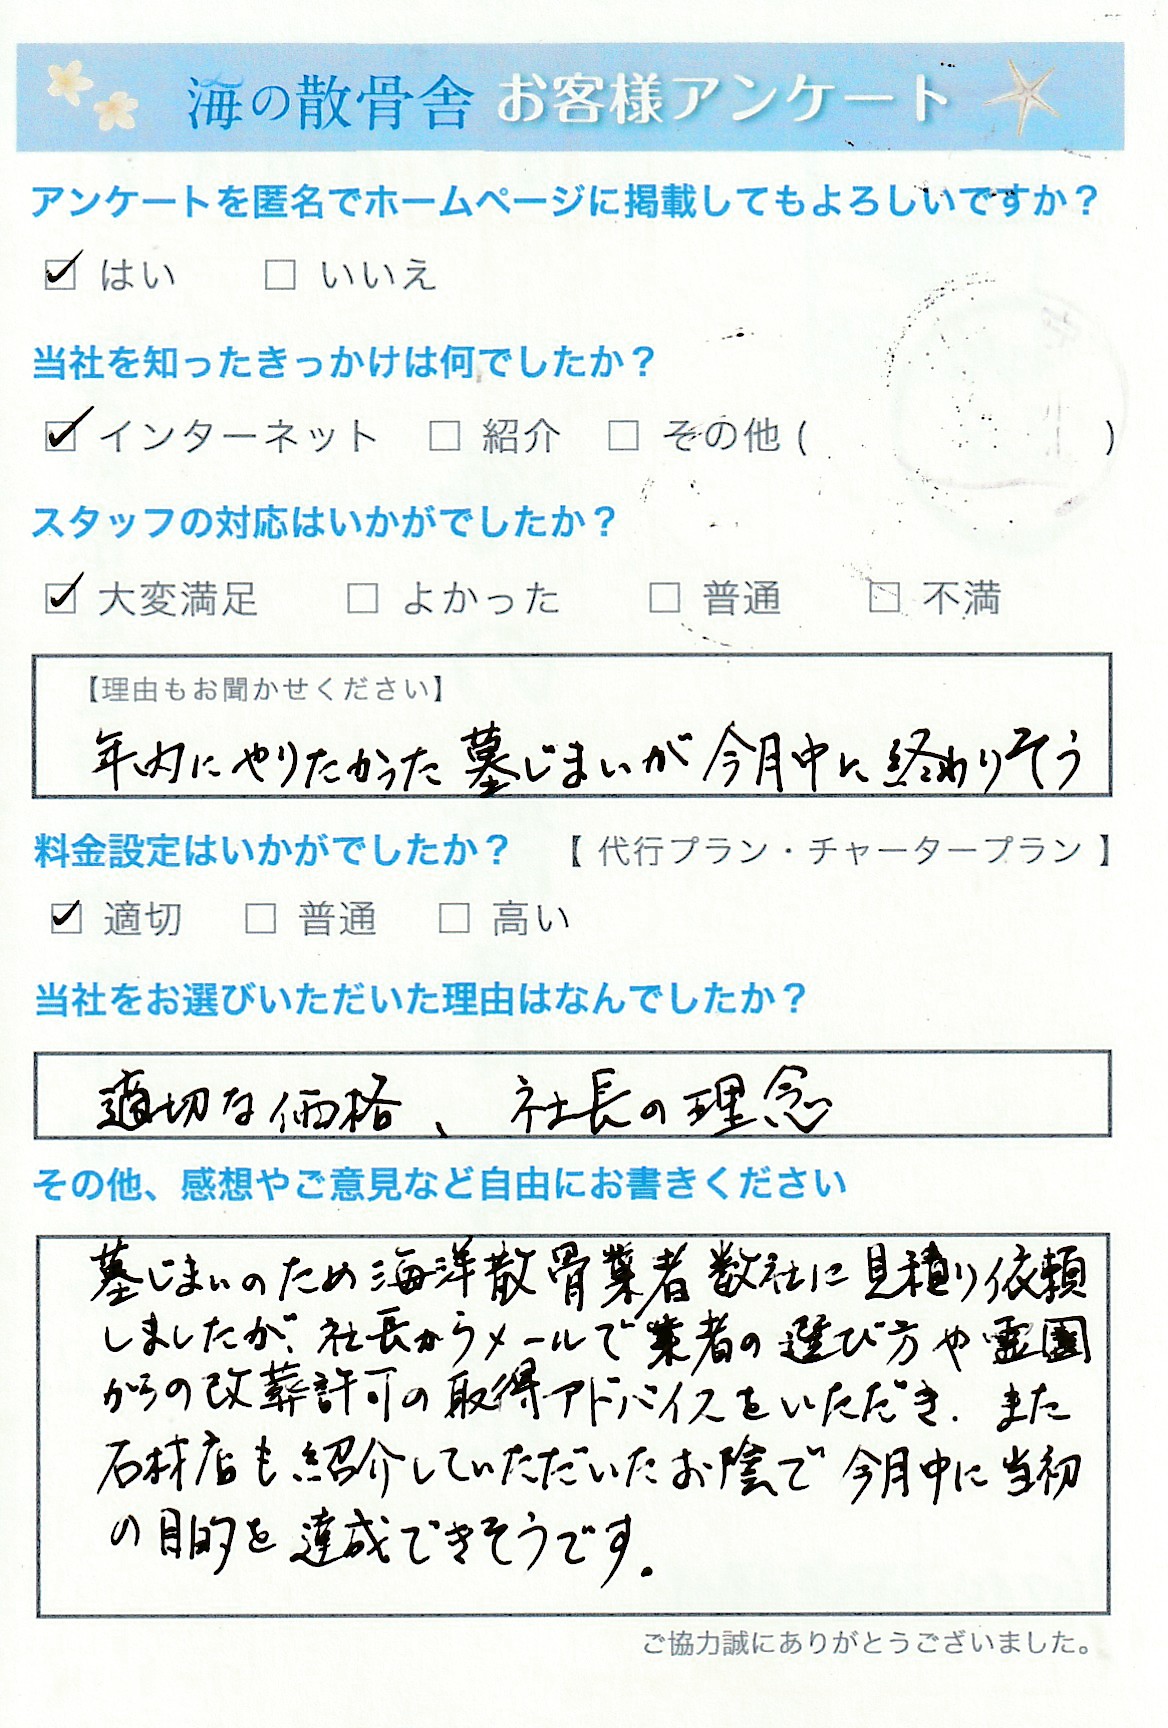 海の散骨舎 お客様アンケート
アンケートを匿名でホームページに掲載してもよろしいですか？
☑ はい □ いいえ
当社を知ったきっかけは何でしたか？
☑ インターネット □ 紹介 □ その他 ( )
スタッフの対応はいかがでしたか？
☑ 大変満足 □ よかった □ 普通 □ 不満
【理由もお聞かせください】
年内にやりたかった墓じまいが今月中に終わりそう
料金設定はいかがでしたか？ 【 代行プラン・チャータープラン 】
☑ 適切 □ 普通 □ 高い
当社をお選びいただいた理由はなんでしたか？
適切な価格、社長の理念
その他、感想やご意見など自由にお書きください
墓じまいのため海洋散骨業者数社に見積り依頼
しましたが、社長からメールで業者の選び方や霊園
からの改葬許可の取得アドバイスをいただき、また
石材店も紹介していただいたお陰で今月中に当初
の目的を達成できそうです。
ご協力誠にありがとうございました。